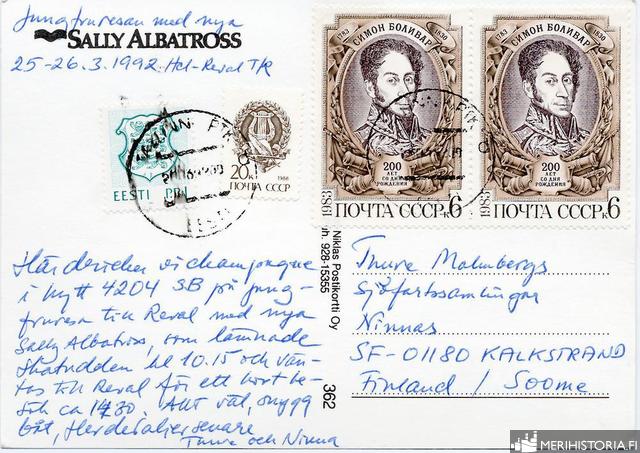 Jungfruresan med nya
SALLY ALBATROSS
25-26.3.1992 Hel-Reval T/R
СИМОН БОЛИВАР
1783
1830
200
ЛЕТ
СО ДНЯ
РОЖДЕНИЯ
1983
ПОЧТА СССР к6
СИМОН БОЛИВАР
1783
1830
200
ЛЕТ
СО ДНЯ
РОЖДЕНИЯ
1983
ПОЧТА СССР к6
EESTI
20к
1988
ПОЧТА СССР
EESTI
Här dricker vi champagne
i hytt 4204 SB på jung-
fruresa till Reval med nya
Sally Albatross, som lämnade
Skatudden kl 10.15 och vän-
tas till Reval för ett kort be-
sök ca 1430. Allt väl, snygg
båt,
Thure och Ninna
Niklas Postikortti Oy
928-15355
362
Thure Malmbergs
Sjöfartssamlingar
Ninnas
SF-01180 KALKSTRAND
Finland / Soome
MERIHISTORIA.FI